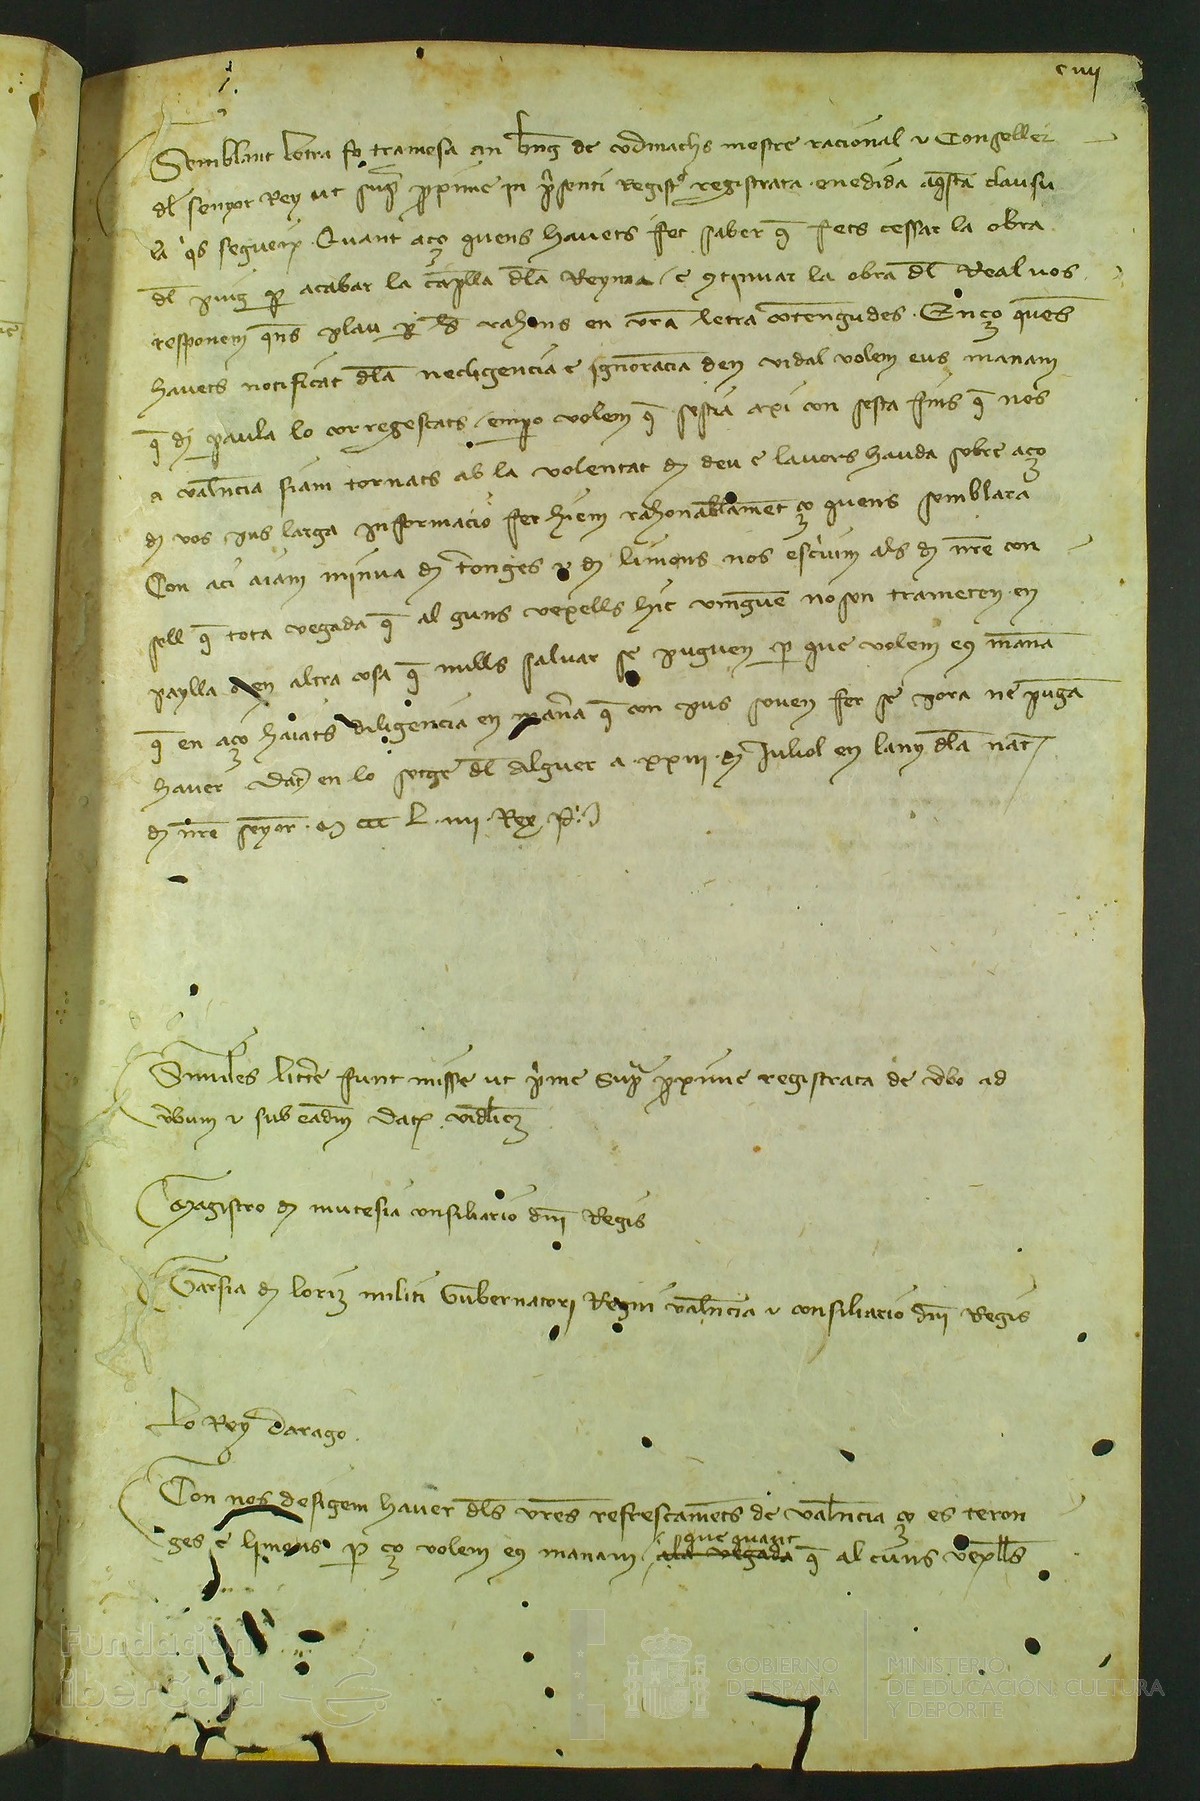 c iiij
Semblant letra fo tramesa an bñg de codinachs mestre racional ⁊ Conseller
dl̃ senyor Rey ut sup̃ ꝓxime in p̃senti Regist° registrata enedida aq̃sta clausu
la q̃s segueix. Quant aço quens havets fet saber q̃ fets cessar la obra
dl̃ puig ꝑ acabar la capella dl̃a Reyna / e ꝯtinuar la obra dl̃ Real uos
responem q̃ns plau ꝑ les rahons en vr̃a letra ꝯtengudes. En ço q̃uens
havets notificat dl̃a necligencia e ignorãcia den vidal volem eus manam
q̃ de paula lo corregescats / empo volem q̃ sestia axi con sesta fins q̃ nos
a valñcia siam tornats ab la volentat de deu e lauors hauda sobre aço
de vos pus larga informacio fer hiem rahonablamẽt ço quens semblara
Con aci aiam minua de tronges ⁊ de limons nos escrivim als de nr̃e con
sell q̃ tota vegada q̃ alguns vexells hic vinguẽ nosen trameten en
paylla o en altra cosa q̃ mills saluar se puguen ꝑ que volem eꝰ manã
q̃ en aço haiats diligencia en manera q̃ con pus souen fer se pora ne pugã
hauer Dat̃ en lo setge dl̃ Alguer a xxiii de Juliol en lany dl̃a nat̃
de nr̃e senyor M ccc L iiii Rex P̃
Similes littr̃e sunt misse ut p̃me sup̃ ꝓxime registrata de v̾bo ad
v̾bum ⁊ sub eadm̃ dat̃ vidl̃icꝫ
Magistro de mutesia consiliario dñi Regis
Garsia de loriz militi Gub̾natori Regni valñcia ⁊ consiliario dñi Regis
Lo Rey Darago
Con nos desigem hauer dl̃s vr̃es refrescamẽts de valñcia ço es teron
ges e limons ꝑ ço volem eꝰ manam que quant q̃ alcuns vexll̃s
Fundación
iberCaja
GOBIERNO
DE ESPAÑA
MINISTERIO
DE EDUCACIÓN, CULTURA
Y DEPORTE